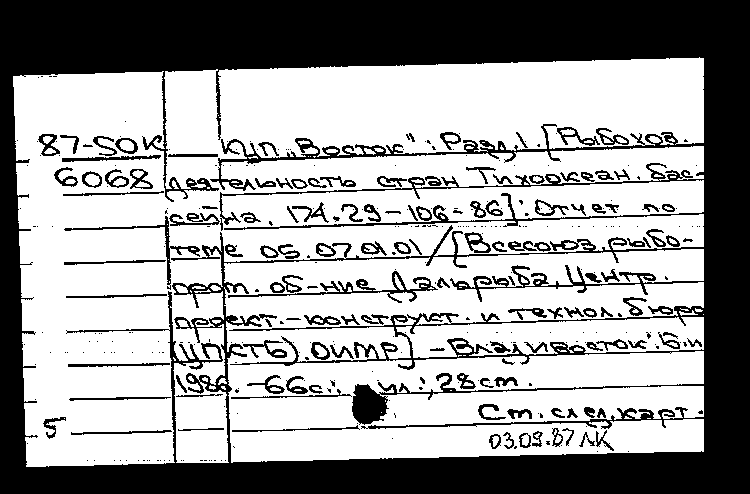 87-50К КЦП „Восток": Разд.1. [Рыбохоз.
6068 деятельность стран Тихоокеан. бас-
сейна. 174.29-106-86]: Отчет по
теме 05.07.01.01 / [Всесоюз. рыбо-
пром. об-ние Дальрыба, Центр.
проект.-конструкт. и технол. бюро
(ЦПКТБ). ОИМР] - Владивосток: Б.и
1986. -66с.: ил.; 28 cm.
Ст. след. карт.
5
03.09.87 ЛК